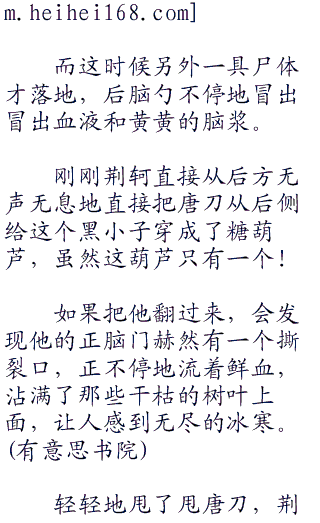 m.heihei168.com]
而这时候另外一具尸体
才落地，后脑勺不停地冒出
冒出血液和黄黄的脑浆。
刚刚荆轲直接从后方无
声无息地直接把唐刀从后侧
给这个黑小子穿成了糖葫
芦，虽然这葫芦只有一个！
如果把他翻过来，会发
现他的正脑门赫然有一个撕
裂口，正不停地流着鲜血，
沾满了那些干枯的树叶上
面，让人感到无尽的冰寒。
(有意思书院)
轻轻地甩了甩唐刀，荆